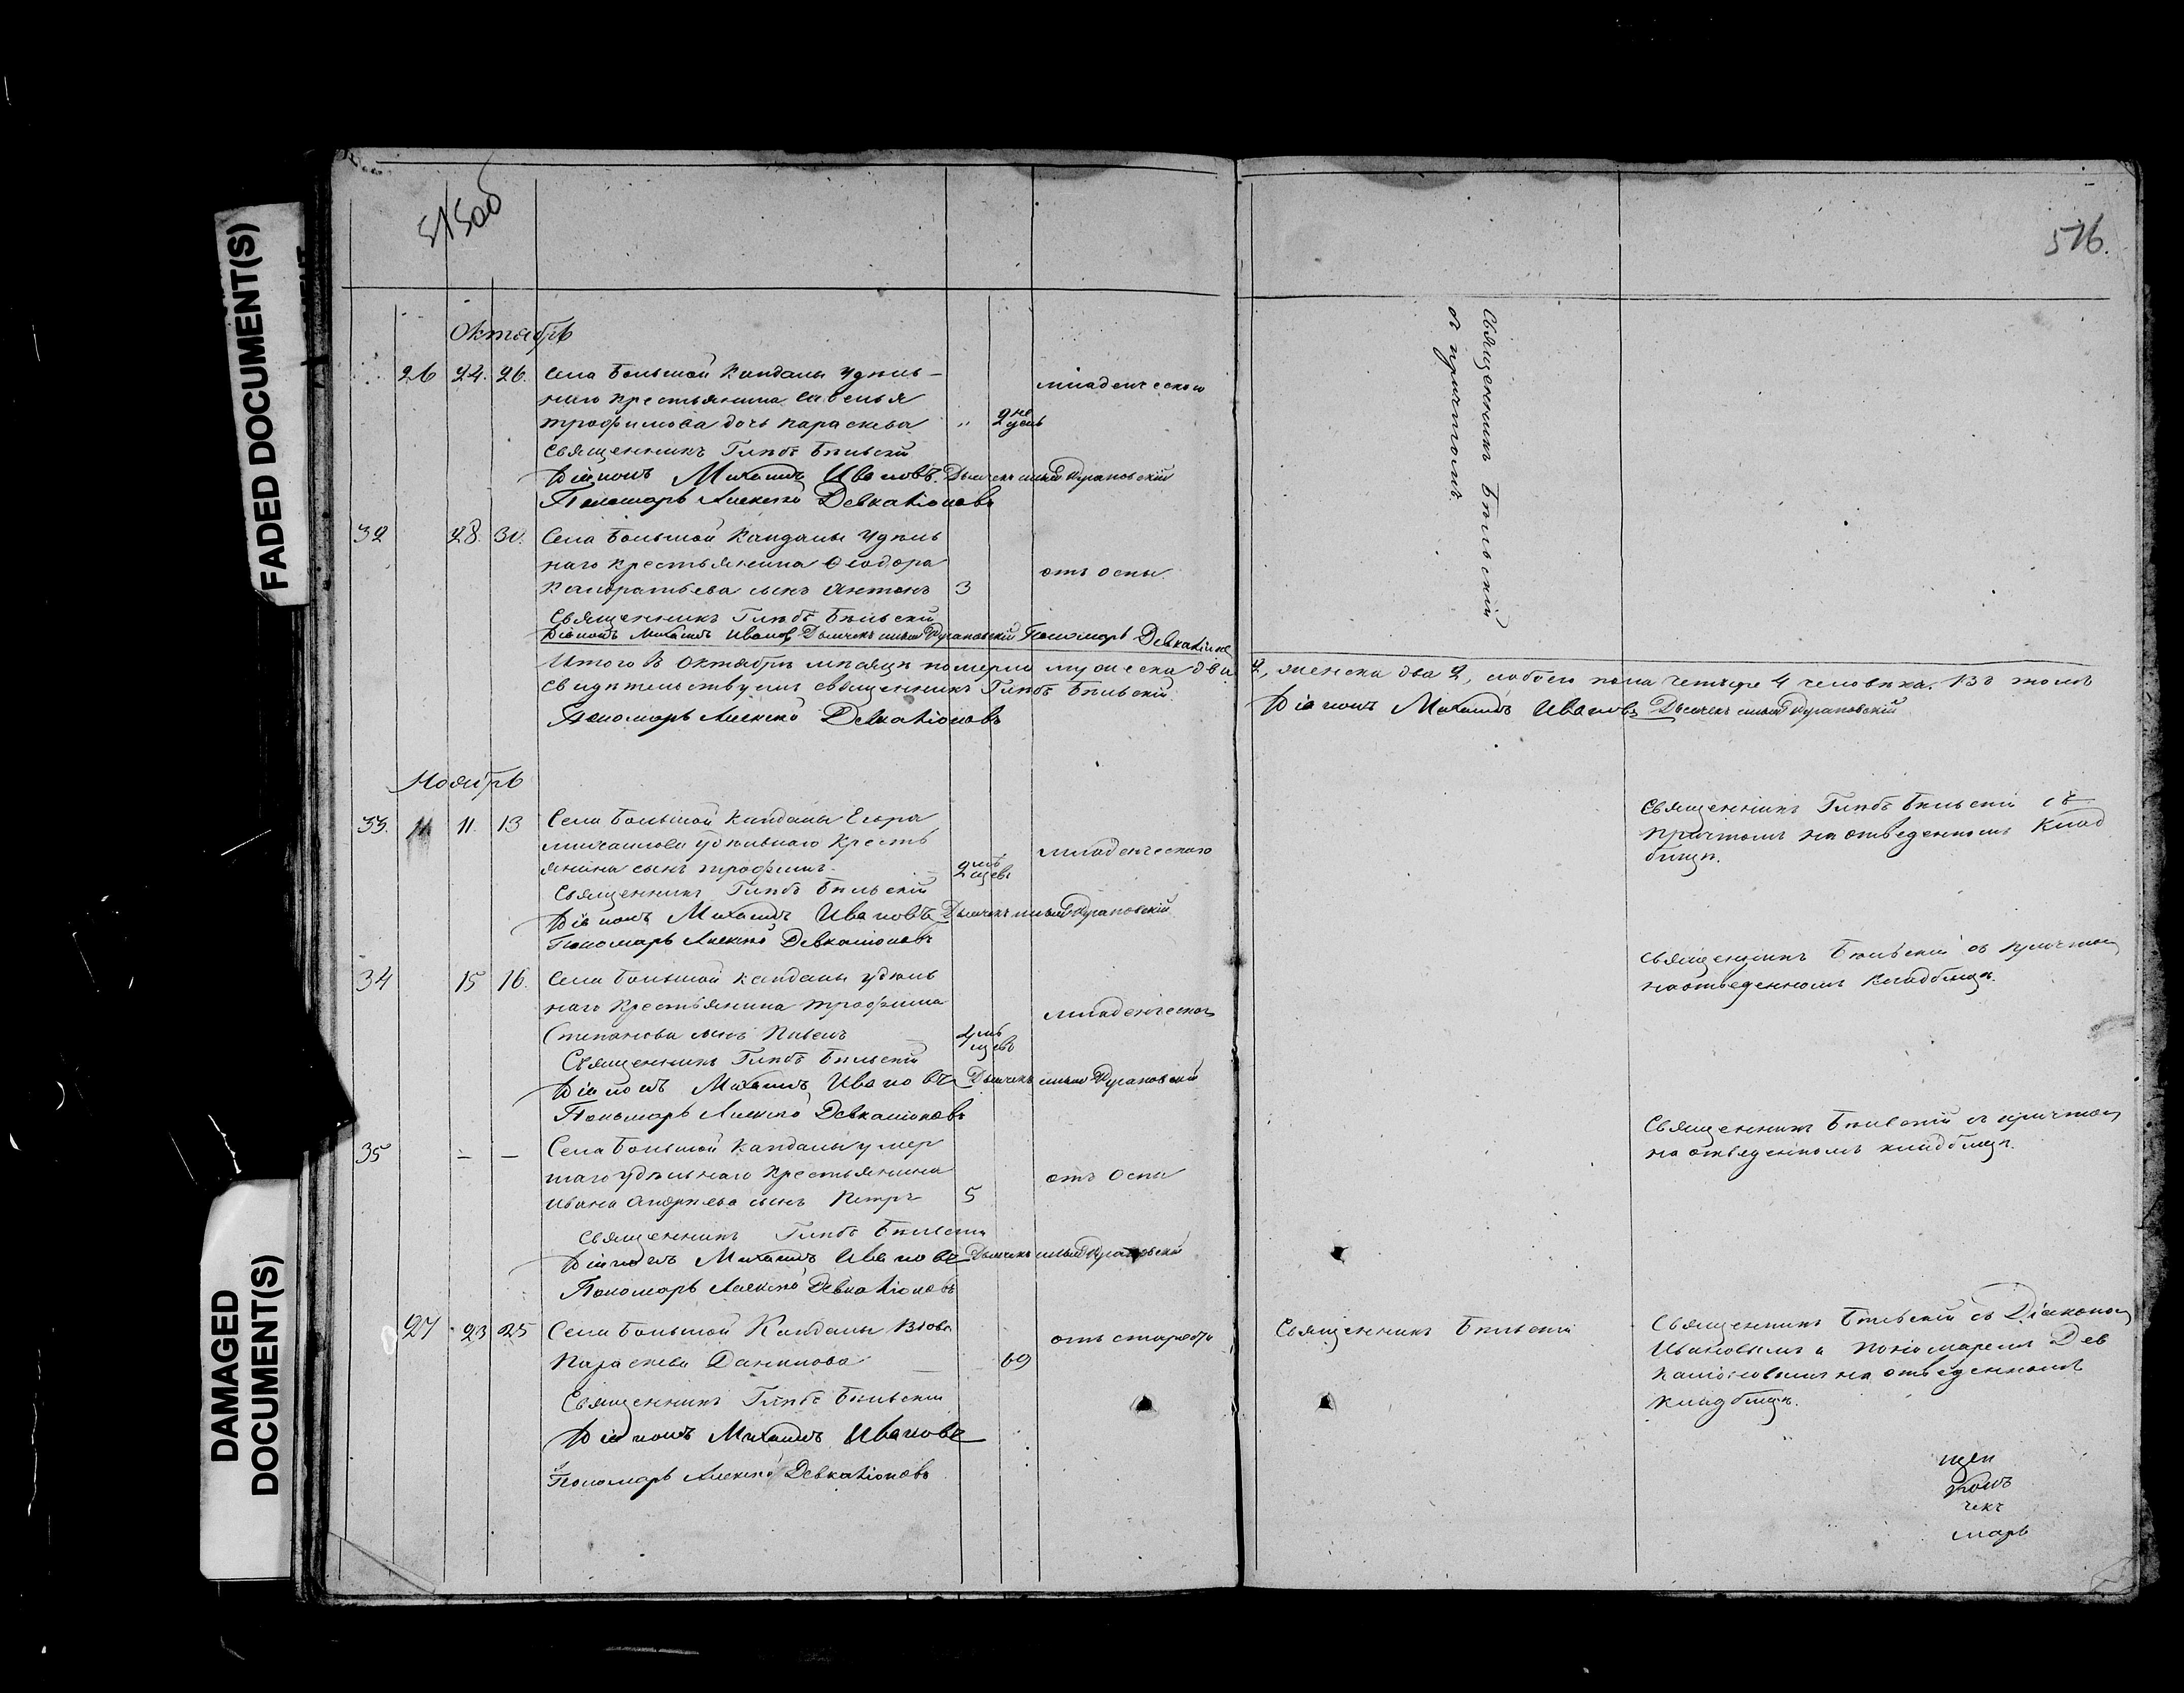 FADED DOCUMENT(S)
DAMAGED
DOCUMENT(S)
515об
516.
Октябрь
26 24. 26. Села Большой Кандалы удѣль-
наго крестьянина Савелья
Трофимова дочь Параскева " 2 не дѣль младенческою
Священникъ Глѣбъ Бѣльскій
Діаконъ Михаилъ Ивановъ. Дьячекъ
Пономарь Алексѣй Девкаліоновъ
32 28. 30. Села Большой Кандалы удѣль
наго крестьянина Ѳеодора
Кондратьева сынъ Антонъ 3 отъ оспы.
Священникъ Глѣбъ Бѣльскій
Діаконъ Михаилъ Ивановъ Дьячекъ Пономарь Девкаліоновъ
Итого въ Октябрѣ мѣсяцѣ померло мужеска два 2, женска два 2, обоего пола четыре 4 человѣка. Въ томъ
свидѣтельствуемъ священникъ Глѣбъ Бѣльскій. Діаконъ Михаилъ Ивановъ Дьячекъ
Пономарь Алексѣй Девкаліоновъ
Священникъ Бѣльскій
съ причтомъ.
Ноябрь
33. 11. 13 Села Большой Кандалы Егора
Михаилова удѣльнаго кресть
янина сынъ Трофимъ 2 мѣ сцевъ младенческою
Священникъ Глѣбъ Бѣльскій
Діаконъ Михаилъ Ивановъ Дьячекъ
Пономарь Алексѣй Девкаліоновъ
Священникъ Глѣбъ Бѣльскій съ
причтомъ на отведенномъ клад
бищѣ.
34 15 16. Села Большой Кандалы удѣль
наго крестьянина Трофима
Степанова сынъ Павелъ мѣ сцевъ младенческою
Священникъ Глѣбъ Бѣльскій
Діаконъ Михаилъ Ивановъ Дьячекъ
Пономарь Алексѣй Девкаліоновъ
Священникъ Бѣльскій съ причтомъ
на отведенномъ кладбищѣ.
35 – – Села Большой Кандалы умер
шаго удѣльнаго крестьянина
Ивана Андреева сынъ Петръ 5 отъ оспы
Священникъ Глѣбъ Бѣльскій
Діаконъ Михаилъ Ивановъ Дьячекъ
Пономарь Алексѣй Девкаліоновъ
Священникъ Бѣльскій съ причтомъ
на отведенномъ кладбищѣ.
27 23 25 Села Большой Кандалы вдова
Параскева Данилова 69 отъ старости
Священникъ Глѣбъ Бѣльскій
Діаконъ Михаилъ Ивановъ
Пономарь Алексѣй Девкаліоновъ
Священникъ Бѣльскій
Священникъ Бѣльскій съ Діакономъ
Ивановымъ и Пономаремъ Дев
каліоновымъ на отведенномъ
кладбищѣ.
щен
конъ
чекъ
марь